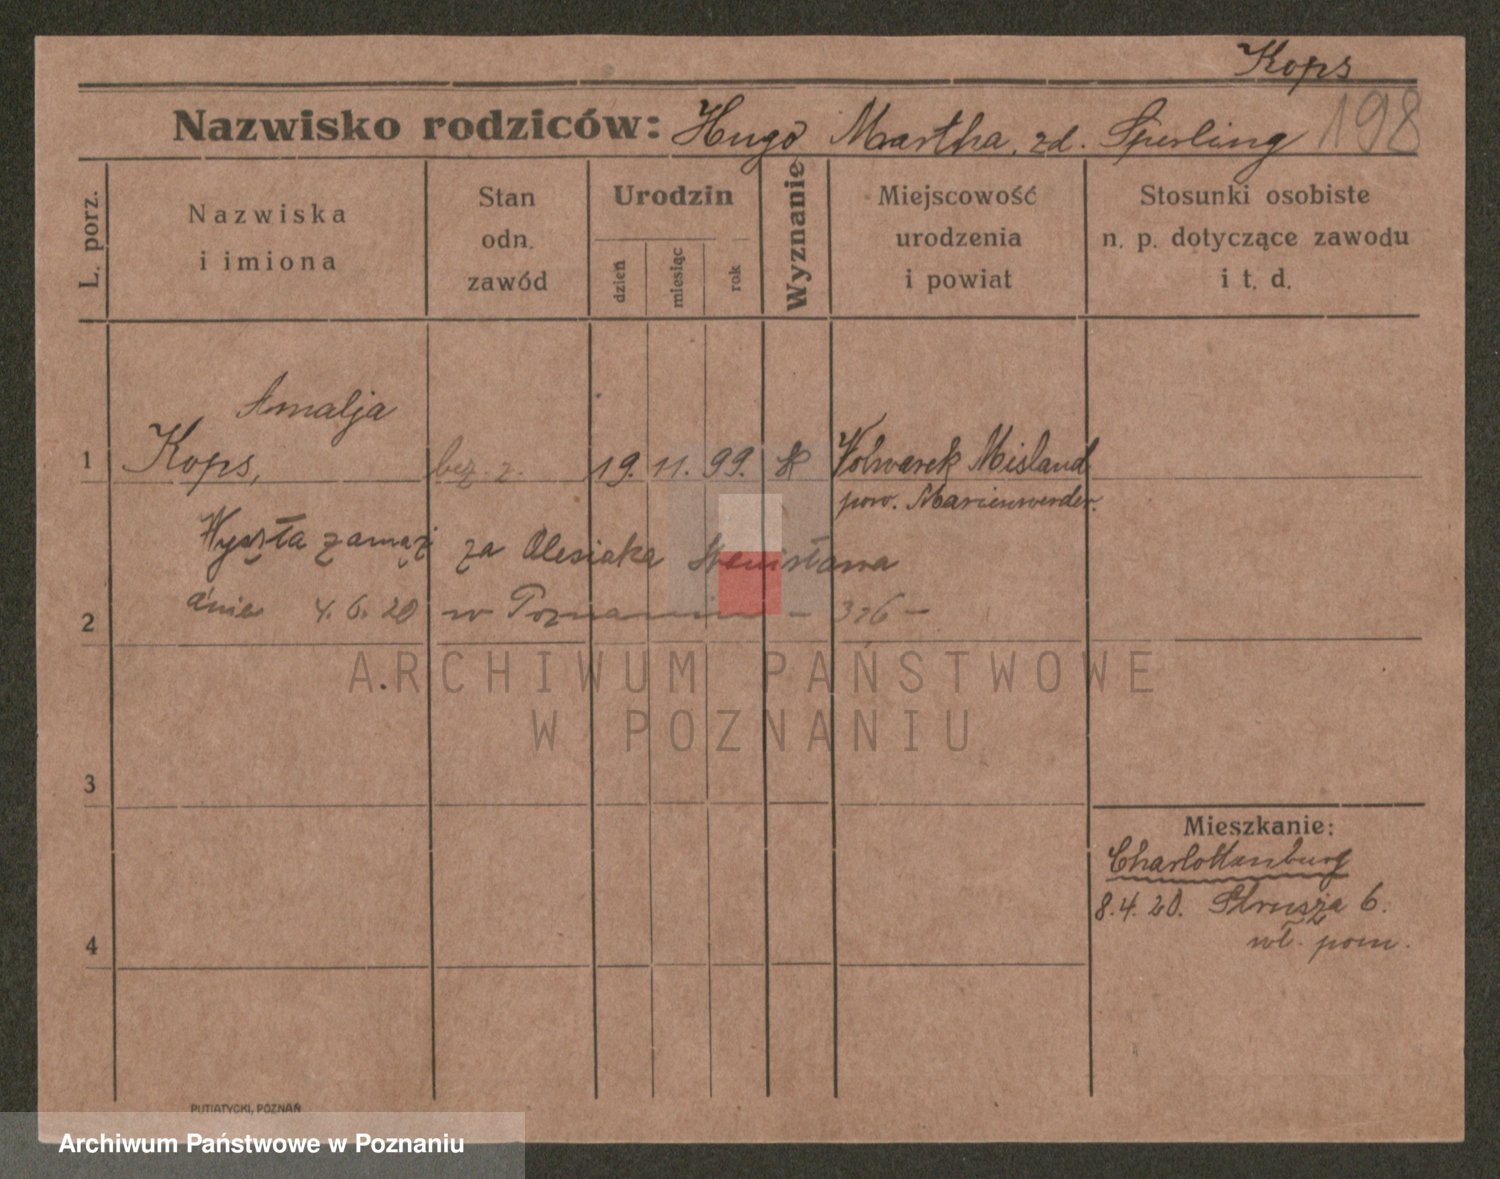 Kops
Nazwisko rodziców: Hugo Martha, zd. Sperling 198
L. porz.
Nazwiska
i imiona
Stan
odn.
zawód
Urodzin
dzień
miesiąc
rok
Wyznanie
Miejscowość
urodzenia
i powiat
Stosunki osobiste
n. p. dotyczące zawodu
i t. d.
Amalja
1 Kops, bez. z. 19. 11. 99. k Folwarek Misland
pow. Marienwerder.
Wyszła zamąż za Olesiaka Stanisława
2 dnia 4. 6. 20 w Poznaniu – 376 –
ARCHIWUM PAŃSTWOWE
W POZNANIU
3
Mieszkanie:
Charlottenburg
8.4.20. Strusza 6.
4 wł. pom.
PUTIATYCKI, POZNAŃ
Archiwum Państwowe w Poznaniu